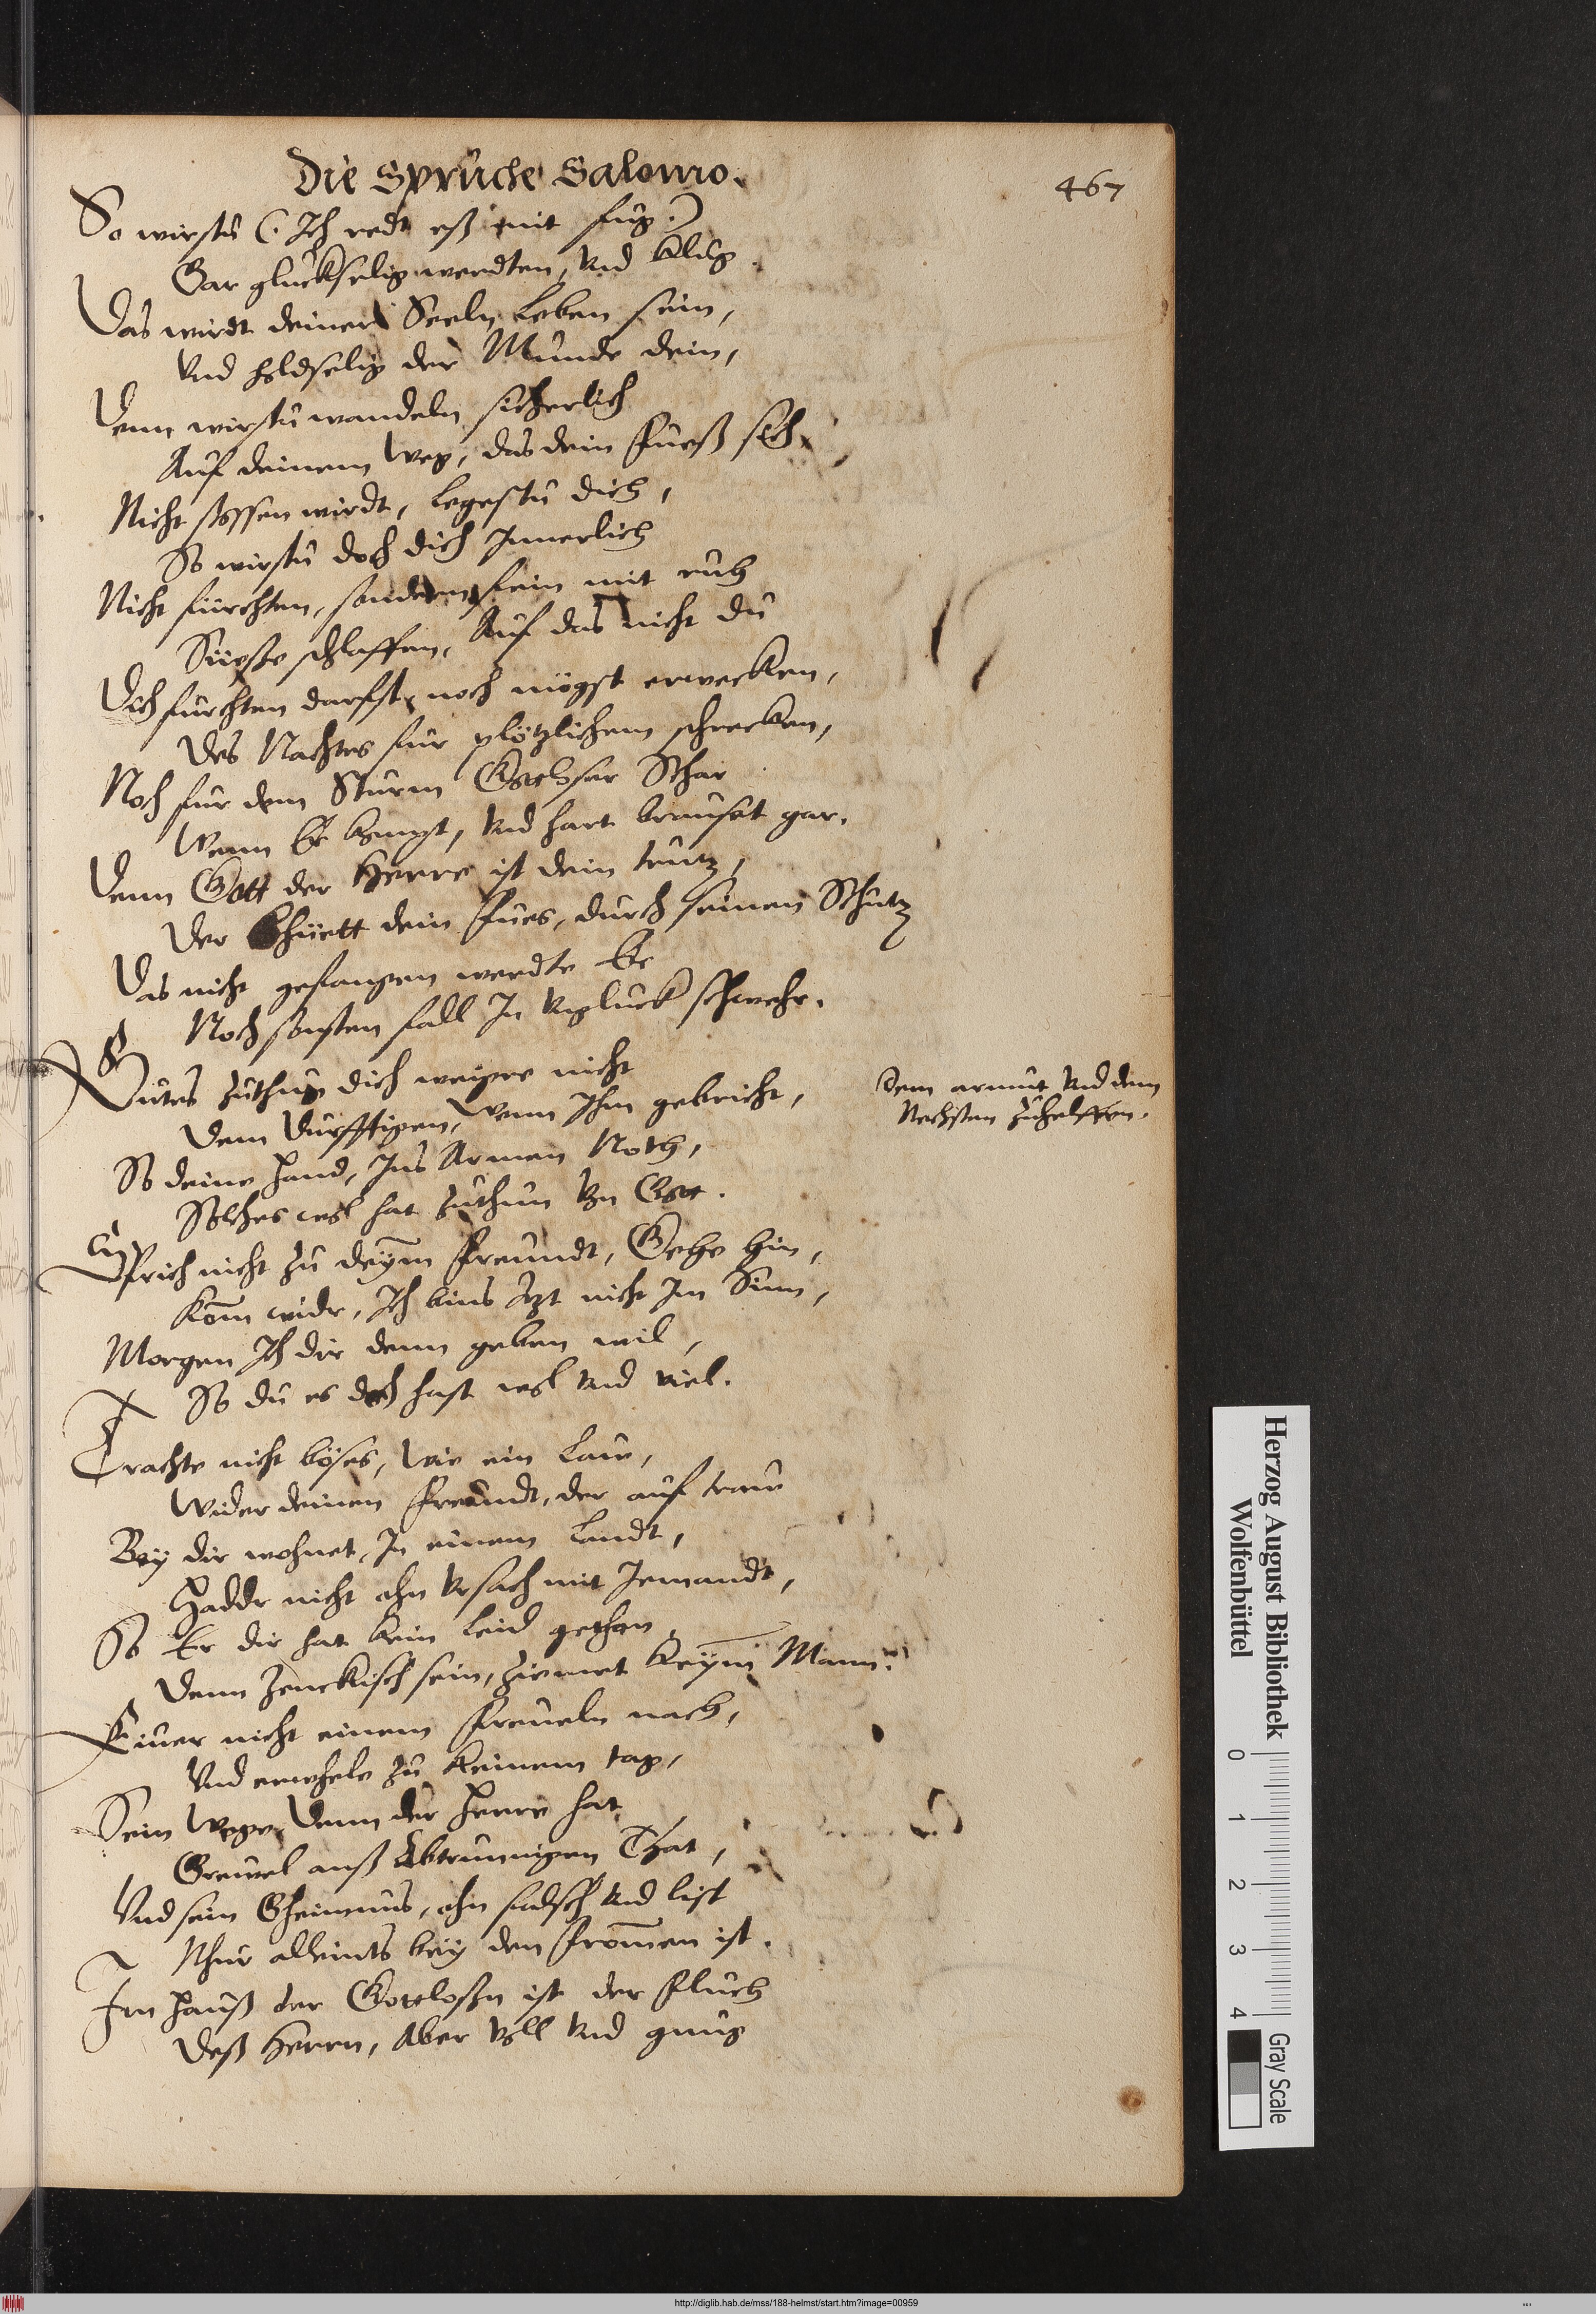 Die Sprüche Salomo.
467
So wirstu (. Ich redt eß mit fug .)
Gar gluckselig werdten, Vnd klug.
Das wirdt deiner Seeln Leben sein,
Vnd holdselig der Munde dein,
Denn wirstu wandeln sicherlich
Auf deinem Weg, das dein Fueß sich
Nicht stossen wirdt, Legestu dich,
So wirstu doch dich Innerlich
Nicht fürchten, sondern fein mit ruh
Süesse schlaffen, Auf das nicht du
Dich furchten darfst, noch mögst erwecken,
Des Nachtes fur plötzlichem schrecken,
Noch fur dem Sturm Gotloser Schar
Wenn Er kompt, Vnd hart brauset gar.
Denn Gott der Herre ist dein trutz,
Der Bhüett dein Fues, durch seinen Schutz
Das nicht gefangen werdte Er
Noch sonsten fall In Vngluck schwehr.
Gutes zuthun dich weigre nicht
Dem Dürfftigen, Wenn Ihm gebricht,
Dem armut Vnd dem
Nechsten zuhelffen.
So deine Hand, Ins Armen Noth,
Solches wol hat zuthun Von Gott.
Sprich nicht zu deym Freundt, Gehe hin,
Kom̄ widr, Ich bins Itzt nicht Im Sinn,
Morgen Ich dir denn geben wil,
So du es doch hast wol Vnd viel.
Trachte nicht böses, Wie ein Laur,
Wider deinen Freundt, der auf traur
Bey dir wohnet, In einem Landt,
Haddr nicht ohn Vrsach mit Jemandt,
So Er dir hat kein Leid gethan,
Denn Zenckisch sein, ziemet keym Mann.
Eiuer nicht einem Freueln nach,
Vnd erwehle zu keinem tag,
Sein Wege, Denn der Herre hat
Grewel auß Abtrunnigen That,
Vnd sein Gheimnus, ohn falsch Vnd list
Nhur alleints bey den From̄en ist.
Im Hauß der Gottlosen ist der Fluch
Deß Herrn, Aber Voll Vnd gnug
Herzog August Bibliothek
Wolfenbüttel
0 1 2 3 4
Gray Scale
http://diglib.hab.de/mss/188-helmst/start.htm?image=00959